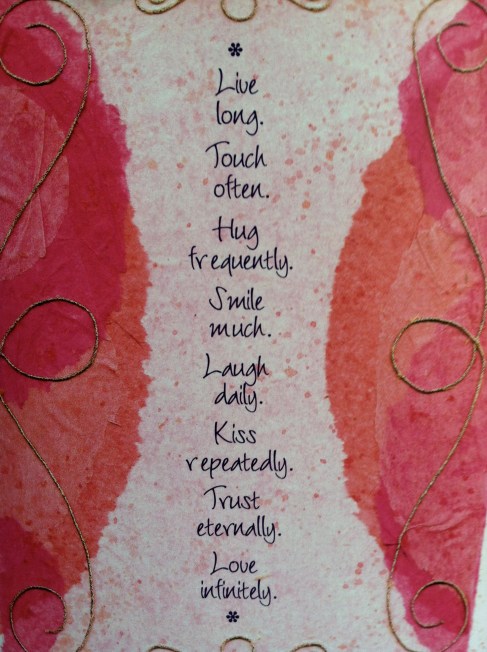 *
Live
long.
Touch
often.
Hug
frequently.
Smile
much.
Laugh
daily.
Kiss
repeatedly.
Trust
eternally.
Love
infinitely.
*